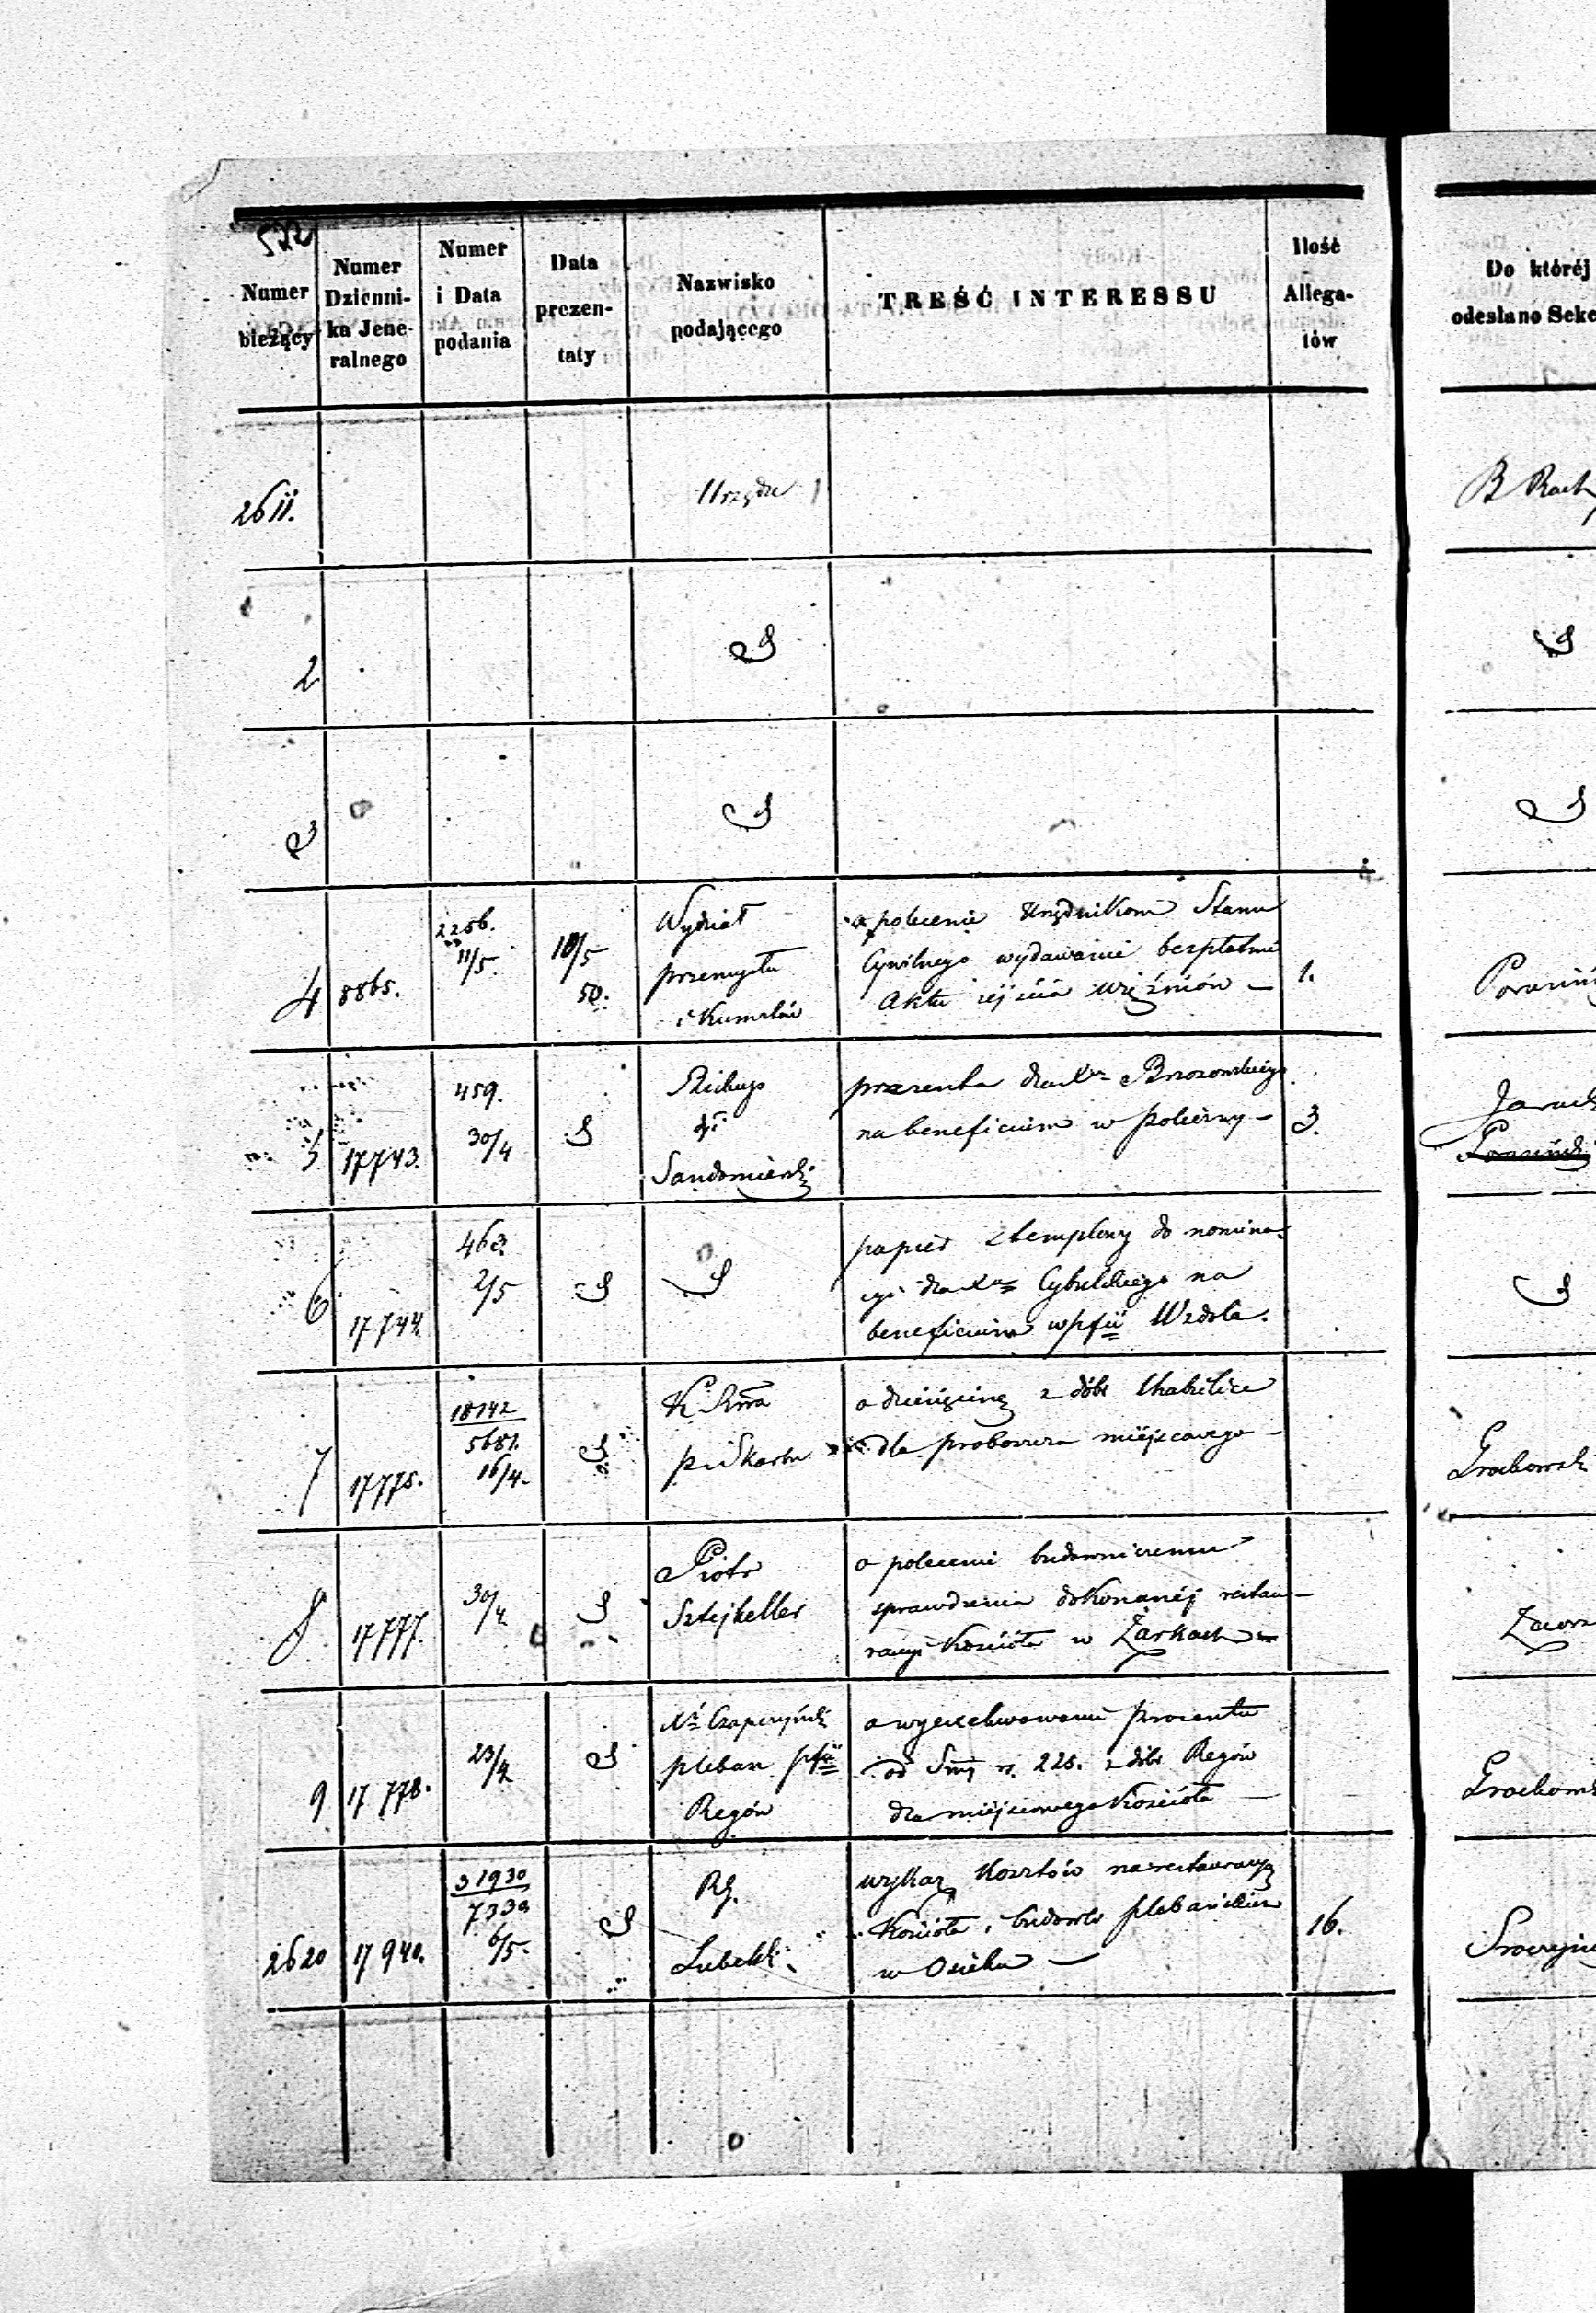 572
Numer bieżący
Numer Dzienni-ka Jene-ralnego
Numer i Data podania
Data prezen-taty
Nazwisko podającego
TREŚĆ INTERESSU
Ilość Allega-tów
Do któréj
odesłano Sekc
2611.
Urzędu
B Rach
2
3
4
8865.
2256.
11/5
18/5
50.
Wydział
przemysłu
i Kunsztów
o polecenie Urzędnikom Stanu
Cywilnego wydawanie bezpłatnie
Aktu zejścia więźniów —
1.
5
17743.
459.
30/4
Biskup
Sandomierski
prezenta dla Xa Brzozowskiego
na beneficium w Policzny —
3.
6
17744.
463.
2/5
papier stemplowy do nomina-
cyi dla Xa Cybulskiego na
beneficium w pfii Wzdole.
7
17775.
18142
5681.
16/4.
K Rzwa
p i Skarbu
o dziesięcinę z dóbr Chabielice
dla proboszcza miejscowego —
Grabowsk
8
17777.
30/4
Piotr
Sztejkeller
o polecenie budowniczemu
sprawdzenia dokonanéj restau—
racyi Kościoła w Żarkach —
9
17 778.
23/4
Xd Czapczyński
pleban pfii
Regów
o wyexekwowanie procentu
od Smy rs. 225. z dóbr Regów
dla miejscowego Kościoła —
2620
17 940.
31930
7339
6/5.
RG.
Lubelski
wykaz kosztów na restauracyę
Kościoła i budowle plebańskie
w Osieku —
16.